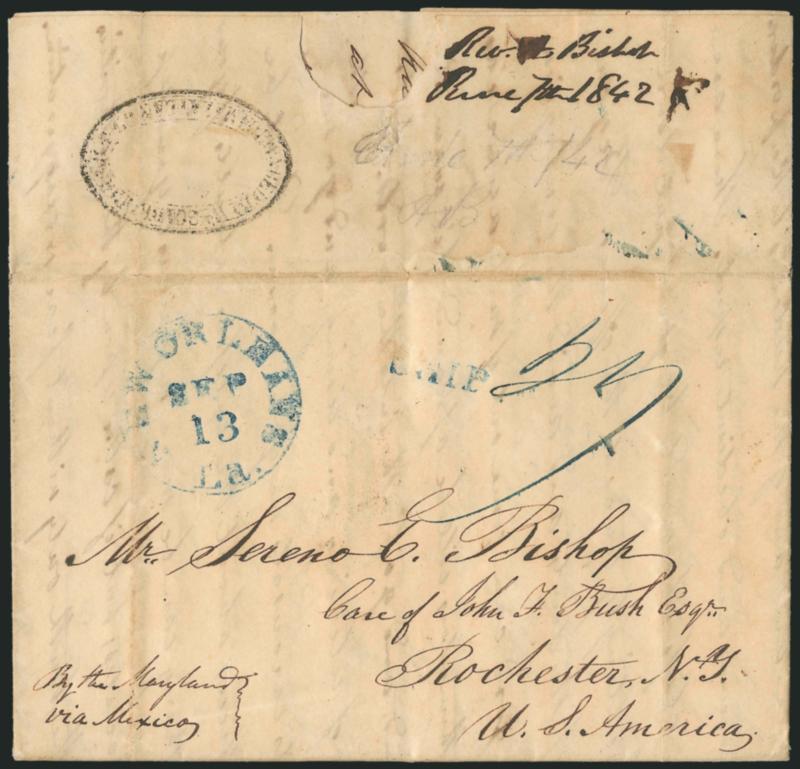 Rev. A Bishop
June 7th 1842
June 7th /42
NEW ORLEANS
La.
SEP
13
SHIP
27
Mr. Sereno E. Bishop
Care of John F. Bush Esqr.
Rochester, N.Y.
U. S. America
By the Maryland
via Mexico